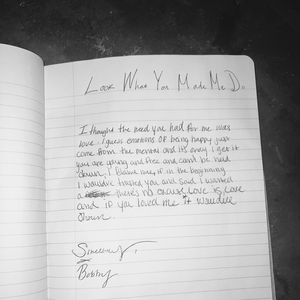 Look What You Made Me Do
I thought the need you had for me was
love. I guess emotions of being happy just
come from the mental and it's only I get it
you are young and free and cant be held
down, I blame may if in the beginning
I wouldnt trusted you and said I wanted
a there's no excuse Love is Love
and if you loved me it wouldve
shown
Sincerely,
Bobby